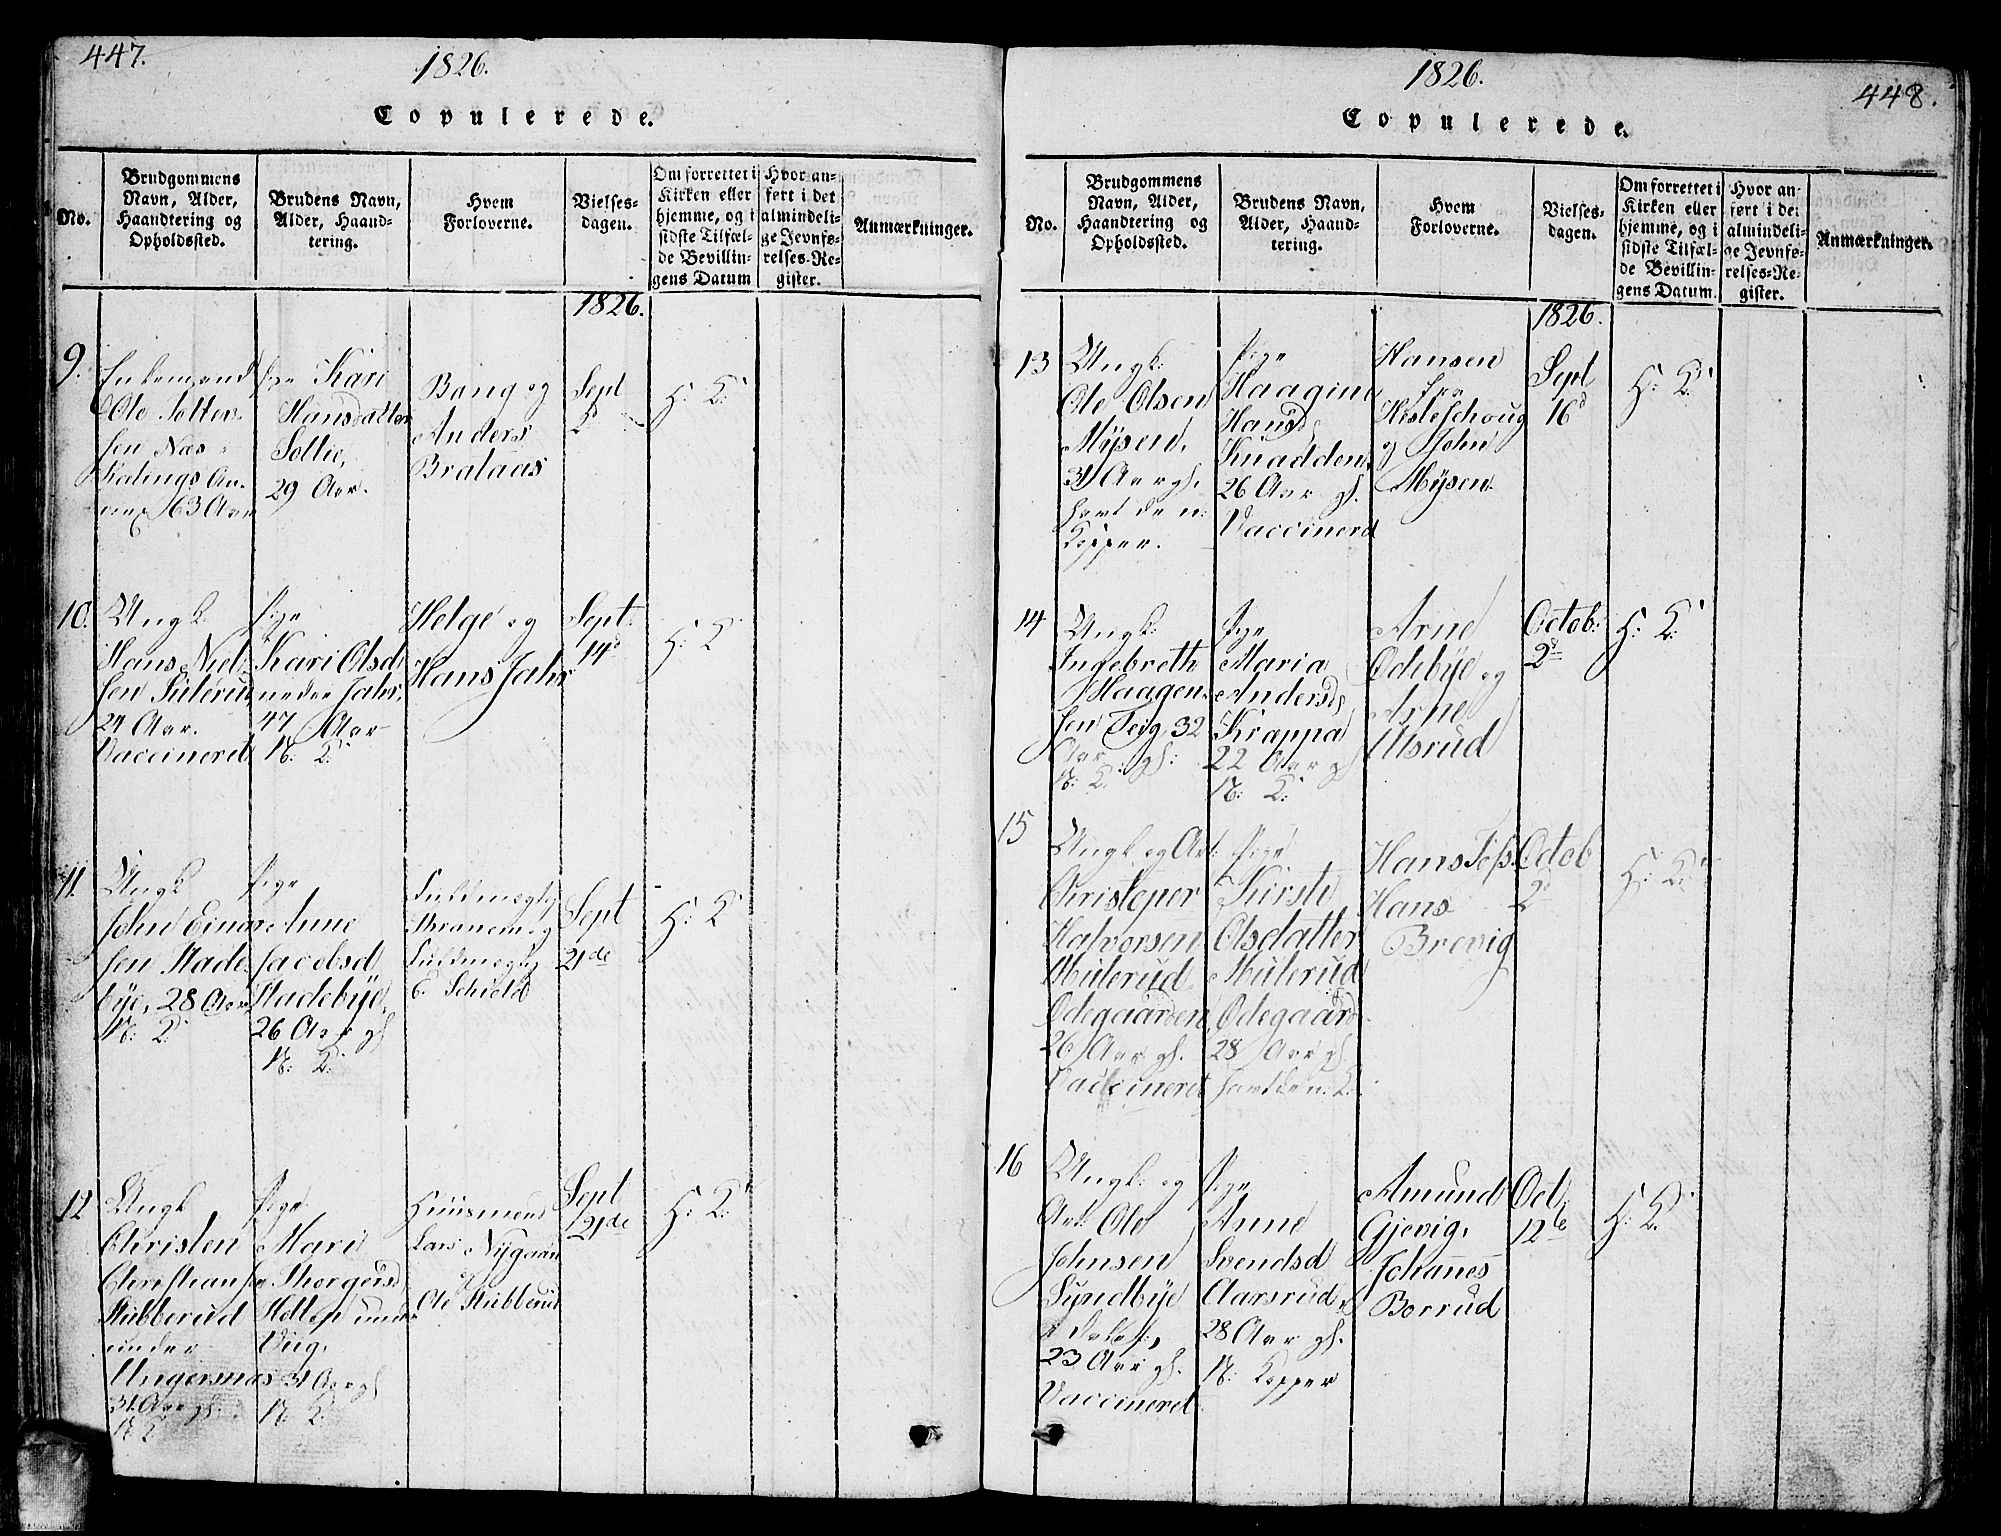 447.
1826.
Copulerede.
No.
Brudgommens
Navn, Alder,
Haandtering og
Opholdssted.
Brudens Navn,
Alder, Haand-
tering.
Hvem
Forloverne.
Vielses-
dagen.
Om forrettet i
Kirken eller
hjemme, og i
sidste Tilfæl-
de Bevillin-
gens Datum
Hvor an-
ført i det
almindeli-
ge Jevnfø-
relses-Re-
gister.
Anmærkninger.
1826.
9.
Enkemand
Ole
sen Næs
An-
nex 63 Aar
Pige Kari
Hansdatter
29 Aar.
Bang og
Anders
Brataas
Sept
H: K:
10.
Ungk.
Hans Niel-
sen
24 Aar.
Vaccineret
Pige
Kari Olsd
nedre Jahr,
47 Aar
N: K:
Helge og
Hans Jahr
Sept:
14d
H: K
11.
Ungk
John Einar-
sen Stade-
bye, 28 Aar
N: K:
Pige
Anne
Jacobsd
Stadebye,
26 Aar gl
N: K:
Fuldmægtig
og
Fuldmægtig
Schiold
Sept
21de
H: K
12
Ungk
Christen
Christiansen
Stubberud
under
Ungersnæs
31 Aar gl.
N K
Pige
Mari
Thorgersd
under
Vug,
31 Aar gl
N: K:
Huusmænd
Lars Nygaard
og
Ole Stubberud
Sept
21de
H: K:
1826.
448.
Copulerede.
No.
Brudgommens
Navn, Alder,
Haandtering og
Opholdssted.
Brudens Navn,
Alder, Haand-
tering;
Hvem
Forloverne.
Vielses-
dagen.
Om forrettet i
Kirken eller
hjemme, og i
sidste Tilfæl-
de Bevillin-
gens Datum.
Hvor an-
ført i det
almindeli-
ge Jevnfø-
relses-Re-
gister.
Anmærkninger.
1826.
13
Ungk:
Ole Olsen
Mÿsen,
31 Aar gl.
havt de n:
Kopper.
Pige
Haagine
Hansd
Knadden
26 Aar gl.
Vaccinerd
Hansen
Hesleschoug
og John
Mÿsen.
Sept
16d
H: K:
14
Ungk:
Ingebreth
Haagen-
sen Teig, 32
Aar gl:
N: K:
Pige
Maria
Andersd
Krappa
22 Aar gl
N: K:
Arne
Ødebÿe og
Arne
Ulsrud
Octob:
2d
H: K:
15
Ungk og
Christopher
Halvorsen
Mulerud
Ødegaarden
26 Aar gl.
Vaccineret
Pige
Kirste
Olsdatter
Mulerud
Ødegaard
28 Aar gl.
havt de n: K:
Hans
Hans
Brevig
Octob
2d
H: K:
16
Ungk: og
Ole
Johnsen
Lundbÿe
23 Aar gl.
Vaccineret
Pige
Anne
Svendsd
Aarsrud
28 Aar gl.
N: Kopper
Amund
Gjevig,
Johannes
Borrud
Oct:
12te
H: K: